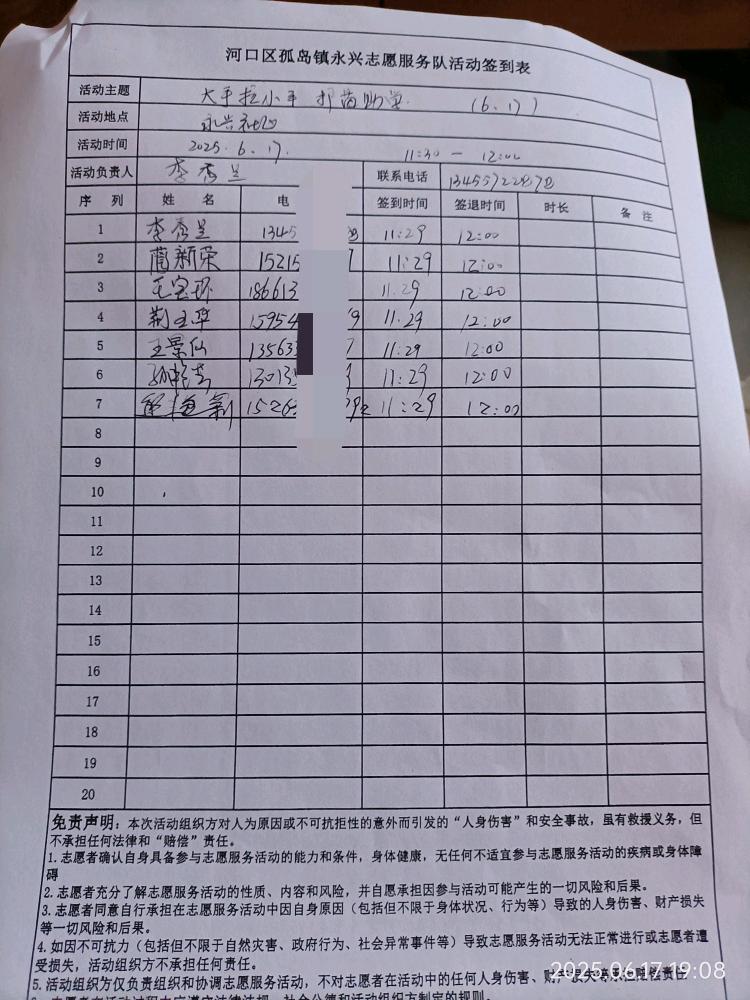 河口区孤岛镇永兴志愿服务队活动签到表
活动主题 大手拉小手 助学 (6.17)
活动地点 永兴社区
活动时间 2025.6.17. 11:30 — 12:00
活动负责人 李秀兰 联系电话
序 列 姓 名 电 签到时间 签退时间 时长 备 注
1 李秀兰 1345 11:29 12:00
2 蔺新荣 15215 7 11:29 12:00
3 王宝环 186613 11.29 12:00
4 荆玉华 15954 9 11.29 12:00
5 王景仙 13563 7 11:29 12:00
6 13013 11:29 12:00
7 1526 11:29 12:00
8
9
10
11
12
13
14
15
16
17
18
19
20
免责声明：本次活动组织方对人为原因或不可抗拒性的意外而引发的“人身伤害”和安全事故，虽有救援义务，但
不承担任何法律和“赔偿”责任。
1. 志愿者确认自身具备参与志愿服务活动的能力和条件，身体健康，无任何不适宜参与志愿服务活动的疾病或身体障
碍
2. 志愿者充分了解志愿服务活动的性质、内容和风险，并自愿承担因参与活动可能产生的一切风险和后果。
3. 志愿者同意自行承担在志愿服务活动中因自身原因（包括但不限于身体状况、行为等）导致的人身伤害、财产损失
等一切风险和后果。
4. 如因不可抗力（包括但不限于自然灾害、政府行为、社会异常事件等）导致志愿服务活动无法正常进行或志愿者遭
受损失，活动组织方不承担任何责任。
5. 活动组织方仅负责组织和协调志愿服务活动，不对志愿者在活动中的任何人身伤害、财产损失等承担赔偿责任
2025.06.17 19:08